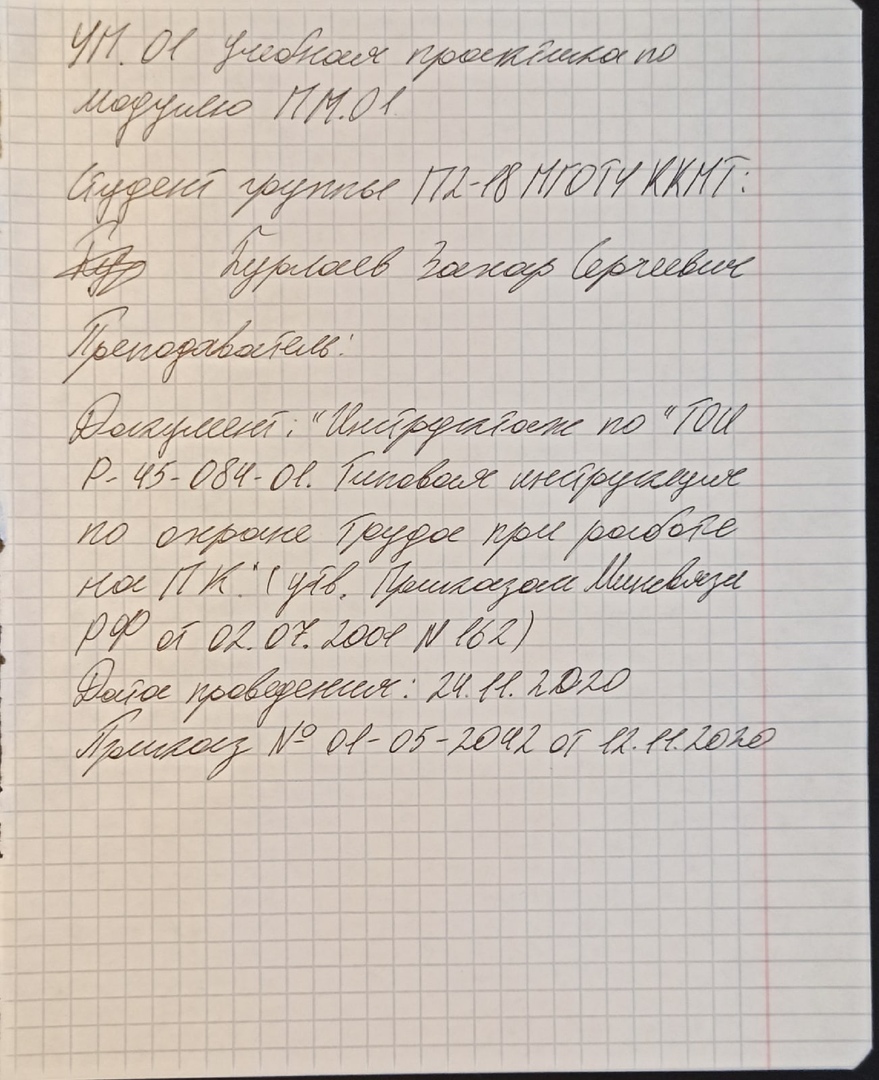 УП.01 Учебная практика по
модулю ПМ.01
Студент группы П2-18 МГОТУ ККМТ:
Бурлаев Захар Сергеевич
Преподаватель:
Документ: "Инструктаж по "ТОИ
Р-45-084-01. Типовая инструкция
по охране труда при работе
на ПК" (утв. Приказом Минсвязи
РФ от 02.07.2001 N 162)
Дата проведения: 24.11.2020
Приказ № 01-05-2042 от 12.11.2020